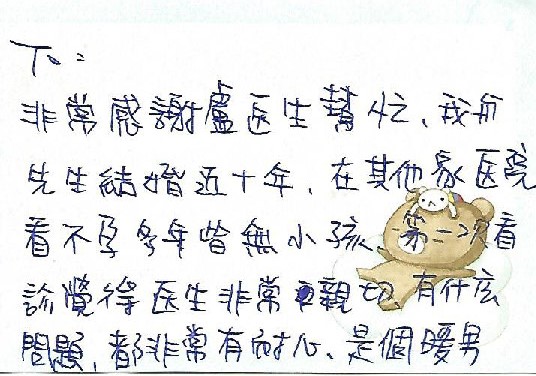 Dr:
非常感謝盧医生幫忙、我和
先生結婚近十年、在其他家医院
看不孕多年皆無小孩、第一次看
診覺得医生非常親切、有什麼
問題、都非常有耐心、是個暖男